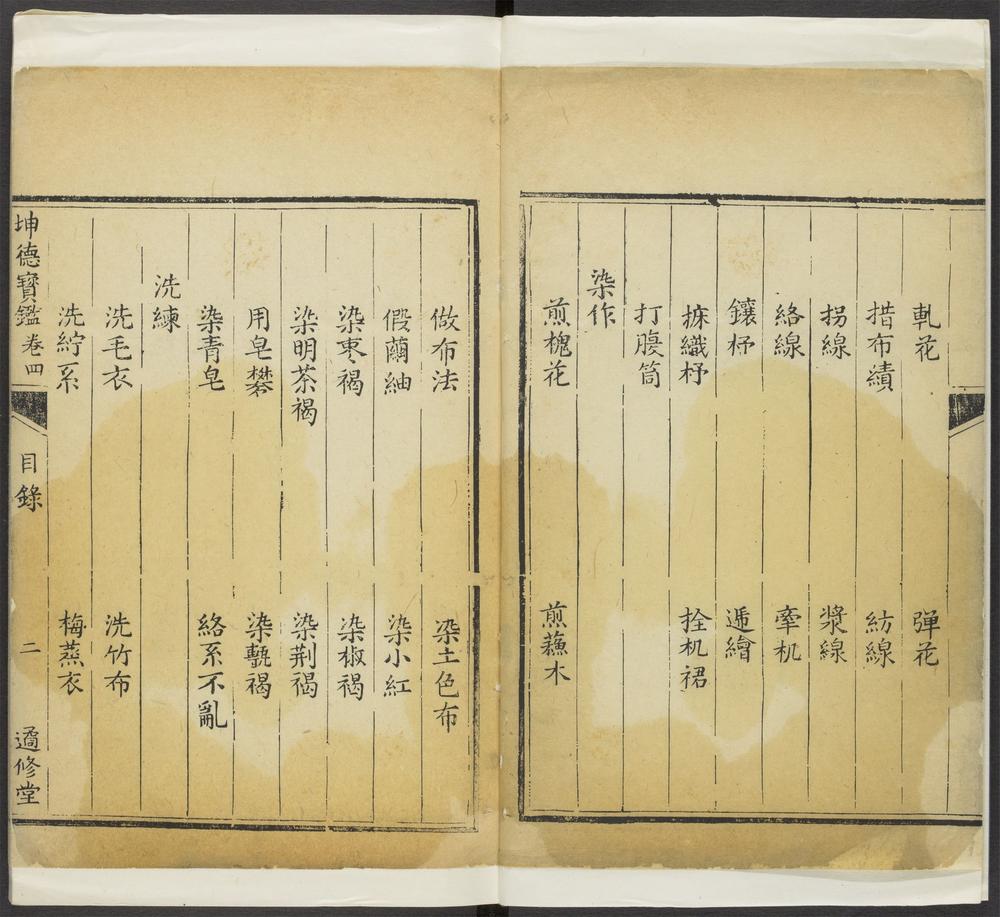 軋花 彈花
措布績 紡線
拐線 漿線
絡線 牽机
鑲杼 遞繒
䋲織杼 拴机裙
打腹筒
染作
煎槐花 煎蘓木
做布法 染土色布
假繭紬 染小紅
染枣褐 染椒褐
染明茶褐 染荆褐
用皂礬 染㼾褐
染青皂 絡系不亂
洗練
洗毛衣 洗竹布
洗紵系 梅蒸衣
坤德寶鑑卷四 目錄 二 遹修堂